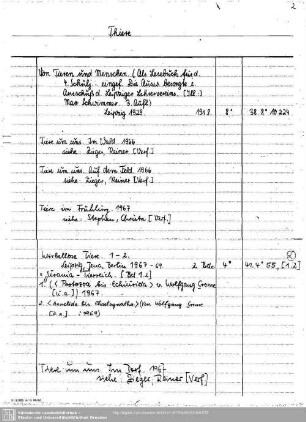 2
Tiere
Von Tieren und Menschen. (Als Lesebuch für d.
4. Schulj. eingef. Die Ausw. besorgte e.
Ausschuß d. Leipziger Lehrervereins. (Ill.:)
Max Schwimmer. 3. Aufl.)
Leipzig 1928. 1928. 8° 38. 8° 10224
Tiere um uns. Im Wald 1966
siehe: Zieger, Reiner [Verf.]
Tiere um uns. Auf dem Feld 1966
siehe: Zieger, Reiner [Verf.]
Tiere im Frühling 1967
siehe: Stephan, Christa [Verf.]
Wirbellose Tiere 1-2.
Leipzig, Jena, Berlin 1967-69. 2 Bde 4° 42. 4° 55, [1.2]
= Urania-Tierreich. [Bd 1.2]
1. (Protozoa bis Echiurida) v. Wolfgang Crome
[u.a.]) 1967
2. (Annelida bis Chaetognatha) (von Wolfgang Crome
[u.a.]) (1969)
Tiere um uns. Im Dorf. 196
siehe Zieger, Reiner [Verf.]